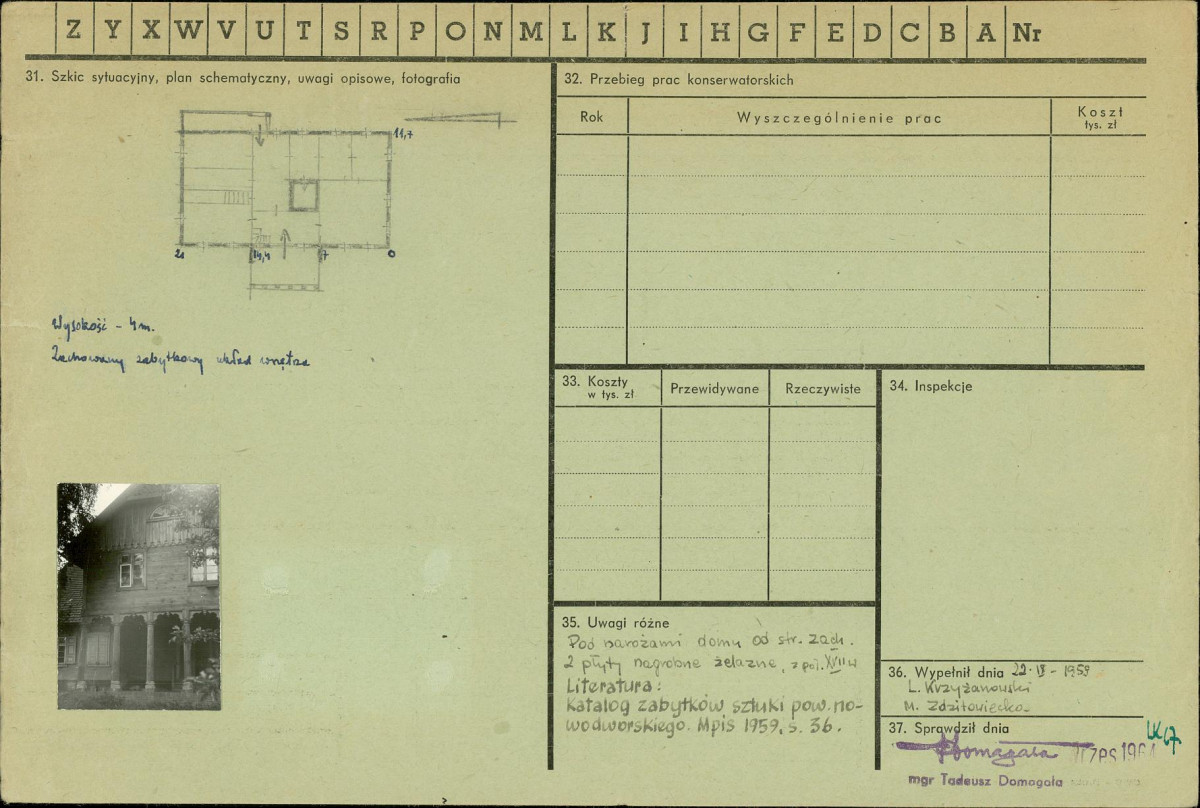 Z Y X W V U T S R P O N M L K J I H G F E D C B A Nr
31. Szkic sytuacyjny, plan schematyczny, uwagi opisowe, fotografia
11,7
21 14,4 7 0
Wysokość - 4 m.
Zachowany zabytkowy układ wnętrza
32. Przebieg prac konserwatorskich
Rok Wyszczególnienie prac Koszt
tys. zł
33. Koszty Przewidywane Rzeczywiste
w tys. zł
34. Inspekcje
35. Uwagi różne
Pod narożami domu od str. zach.
2 płyty nagrobne żelazne, z poł. XVII w
Literatura:
Katalog zabytków sztuki pow. no-
wodworskiego. Mpis 1959, s. 36.
36. Wypełnił dnia 22-VI-1959
L. Krzyżanowski
M.
37. Sprawdził dnia
Domagała 1964
LK 67
mgr Tadeusz Domagała